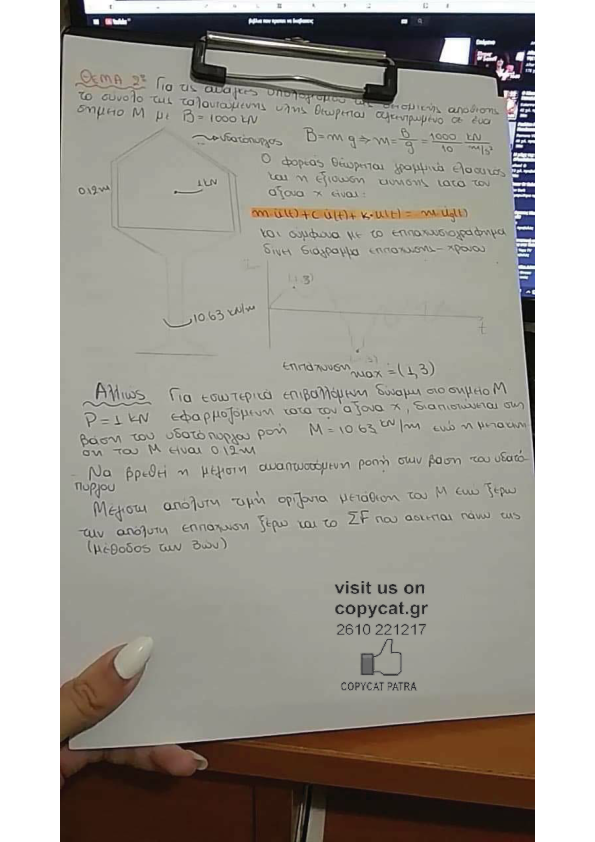 ΘΕΜΑ 2ο Για τις ανάγκες υπολογισμού της σεισμικής απόκρισης
το σύνολο της ταλαντωμένης ύλης θεωρείται συγκεντρωμένο σε ένα
σημείο Μ με Β = 1000 kN
υδατόπυργος
B = m g ⇒ m = B/g = 1000/10 kN/m/s²
Ο φορέας θεωρείται γραμμικά ελαστικός
και η εξίσωση κίνησης κατά τον
άξονα x είναι:
1kN
0.12m
m ü(t) + c u̇(t) + k·u(t) = m üg(t)
και σύμφωνα με το επιταχυνσιογράφημα
δίνει διάγραμμα επιτάχυνσης - χρόνου
(1,3)
10.63 kN/m
t
επιτάχυνση max = (1,3)
Αλλιώς Για εσωτερικά επιβαλλόμενη δύναμη στο σημείο Μ
P = 1 kN εφαρμοζόμενη κατά τον άξονα x, διαπιστώνεται στη
βάση του υδατόπυργου ροπή M = 10.63 kN/m ενώ η μετακίνη
ση του Μ είναι 0.12m
- Να βρεθεί η μέγιστη αναπτυσσόμενη ροπή στην βάση του υδατό
πυργου
Μέγιστη απόλυτη τιμή οριζόντια μετάθεση του Μ ενώ ξέρω
την απόλυτη επιτάχυνση ξέρω και το ΣF που ασκείται πάνω της
(μέθοδος των 3ών)
visit us on
copycat.gr
2610 221217
COPYCAT PATRA